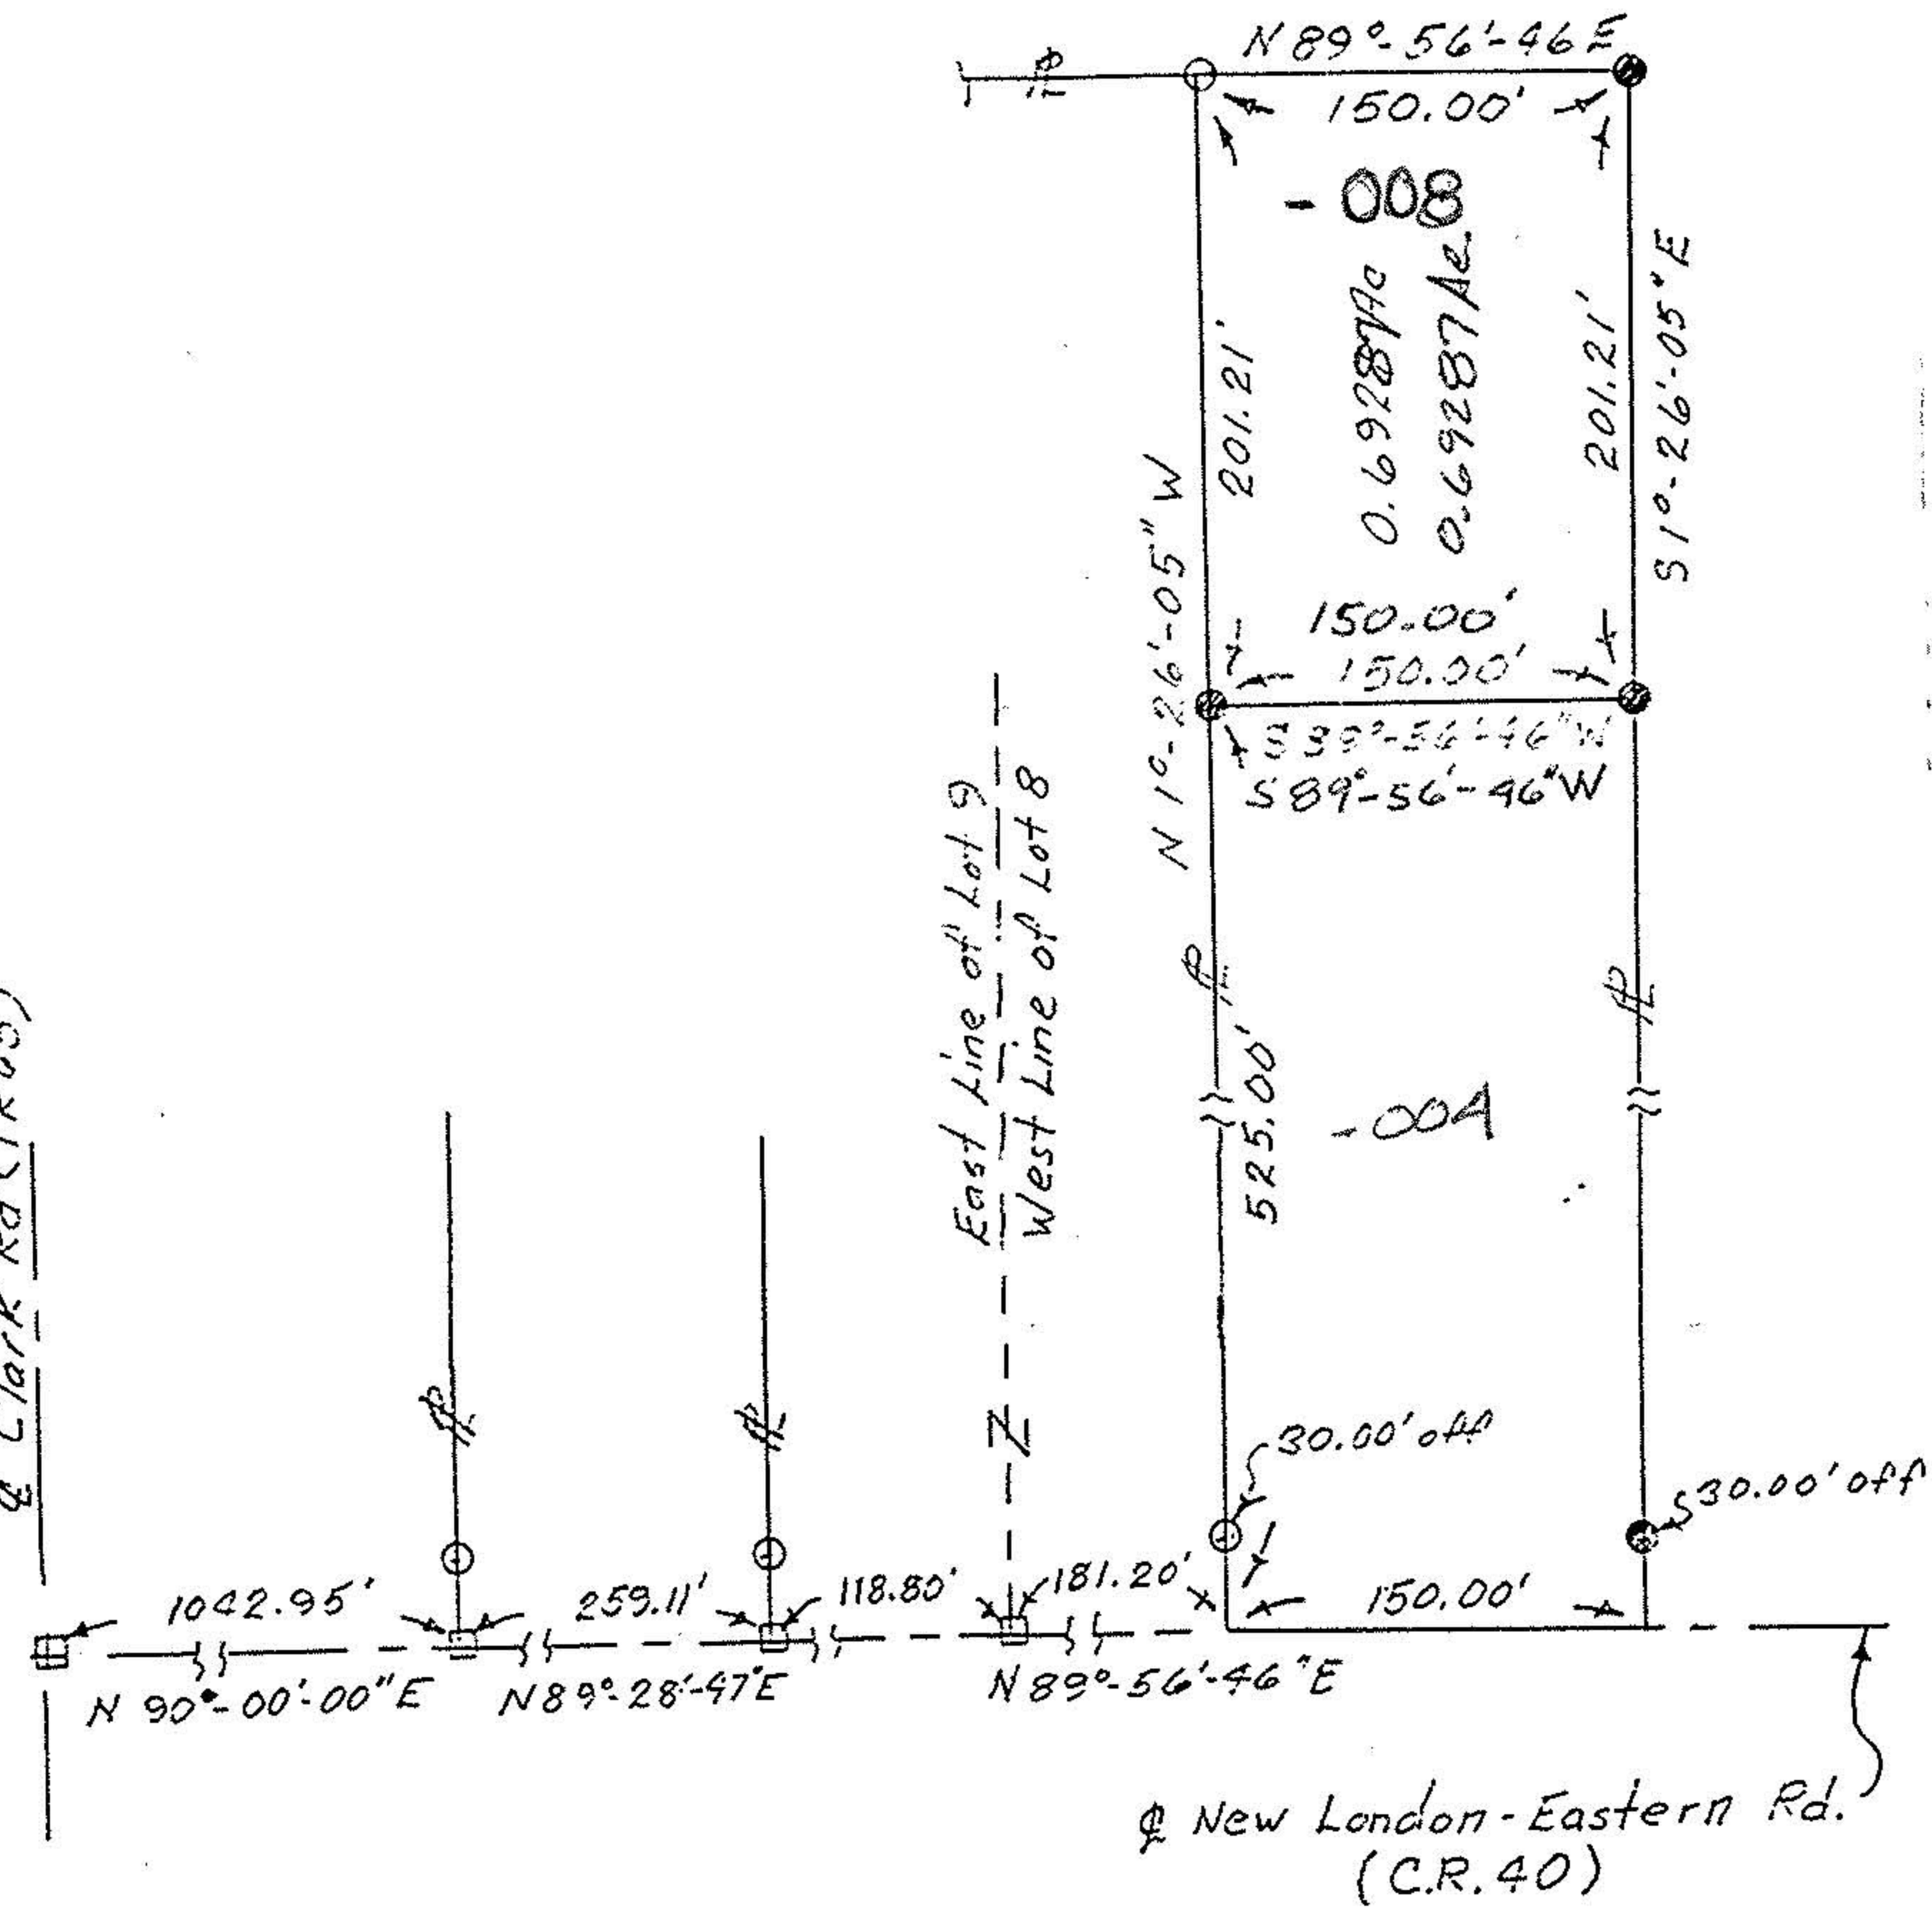 N 89°-56'-46 E
℄
150.00'
- 008
0.69287Ac
0.69287Ac
201.21'
201.21'
S 1°-26'-05" E
N 1°-26'-05" W
150.00'
150.00'
S 89°-56'-46"W
S 89°-56'-46"W
East Line of Lot 9
West Line of Lot 8
℄ Clark Rd
525.00'
- 004
30.00' off
30.00' off
1042.95'
259.11'
118.80'
181.20'
150.00'
N 90°-00'-00" E
N 89°-28'-47"E
N 89°-56'-46"E
℄ New London-Eastern Rd.
(C.R. 40)